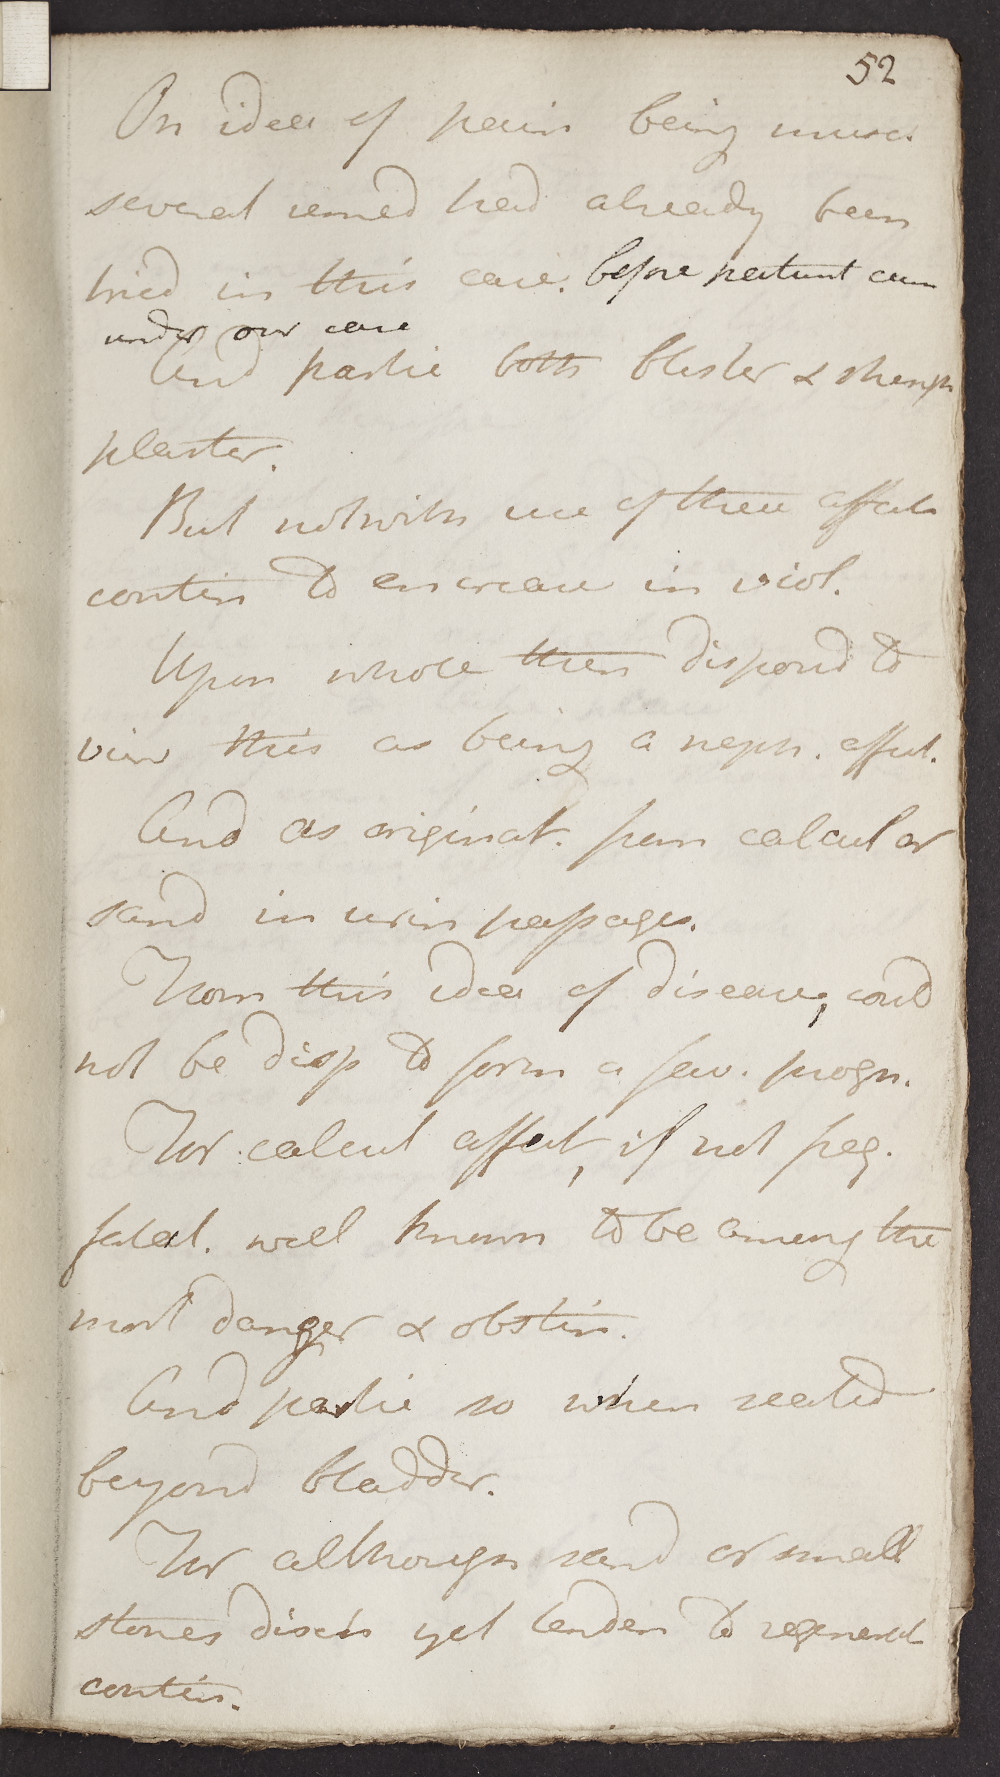 52
On idea of pain being musc.
several remed had already been
tried in this case. before patient cam
under our care
And partic both blister & strength
plaster.
But notwith use of these affect
contin to encrease in viol.
Upon whole then dispond to
view this as being a neph. affect.
And as originat. from calcul or
sand in urin passages.
From this idea of disease, could
not be disp to form a fav. progn.
For calcul affect, if not freq.
fatal. well known to be among the
most danger & obstin.
And partic so when seated
beyond bladder.
For although sand or small
stones disch yet tenden to regenerat
contin.